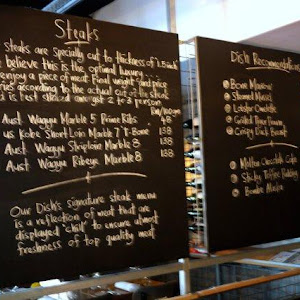 Steaks
steaks are specially cut to thickness of 1.5 inch
believe this is the optimal luxury
enjoy a piece of meat. Final weight and price
according to the actual cut of the steak
is best shared amongst 2 to 3 person
RM/100gm
Aust. Wagyu Marble 5 Prime Ribs
us Kobe Short Loin Marble 7 T-Bone 138
Aust Wagyu Striploin Marble 8 138
Aust Wagyu Ribeye Marble 8 138
Our Dish's Signature steak menu
is a reflection of meat that are
displayed "chill" to ensure utmost
freshness of top quality meat
Dish Recommendations
Bone Marrow
Steamed Mussels
Lobster
Grilled Tiger Prawns
Crispy Duck
Molten Chocolate Cake
Sticky Toffee Pudding
Bombe Alaska